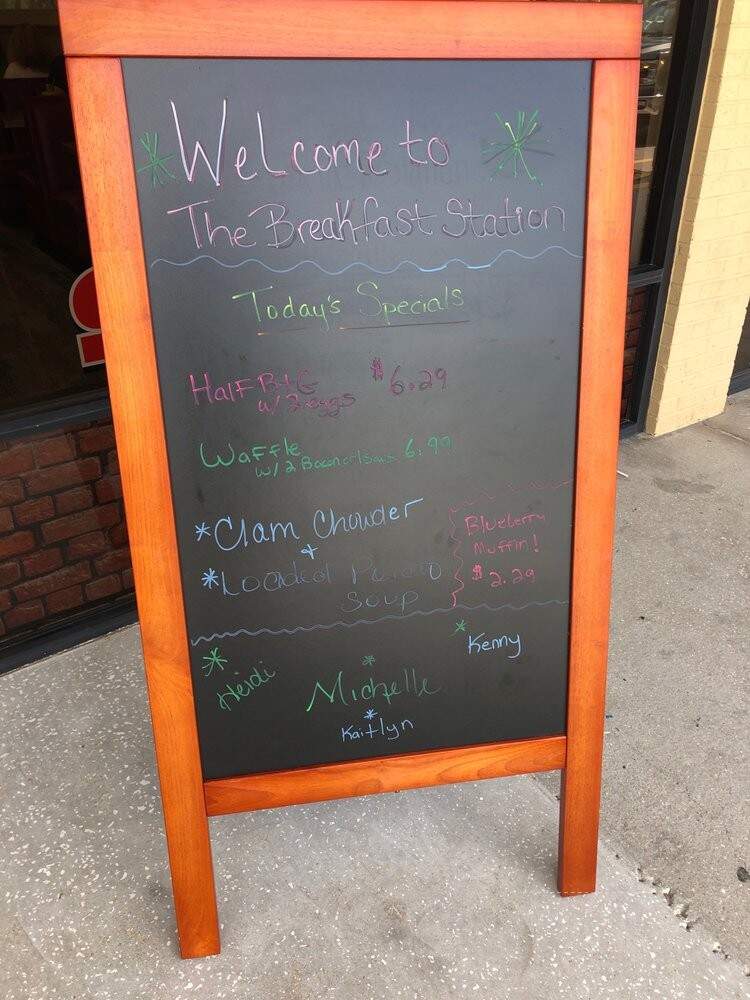 Welcome to
The Breakfast Station
Today's Specials
Half B+G $6.29
w/ 2 eggs
Waffle
w/2 Bacon or Saus 6.99
*Clam Chowder
+
*Loaded Potato
Soup
Blueberry
Muffin!
$2.29
Heidi
Michelle
Kenny
Kaitlyn